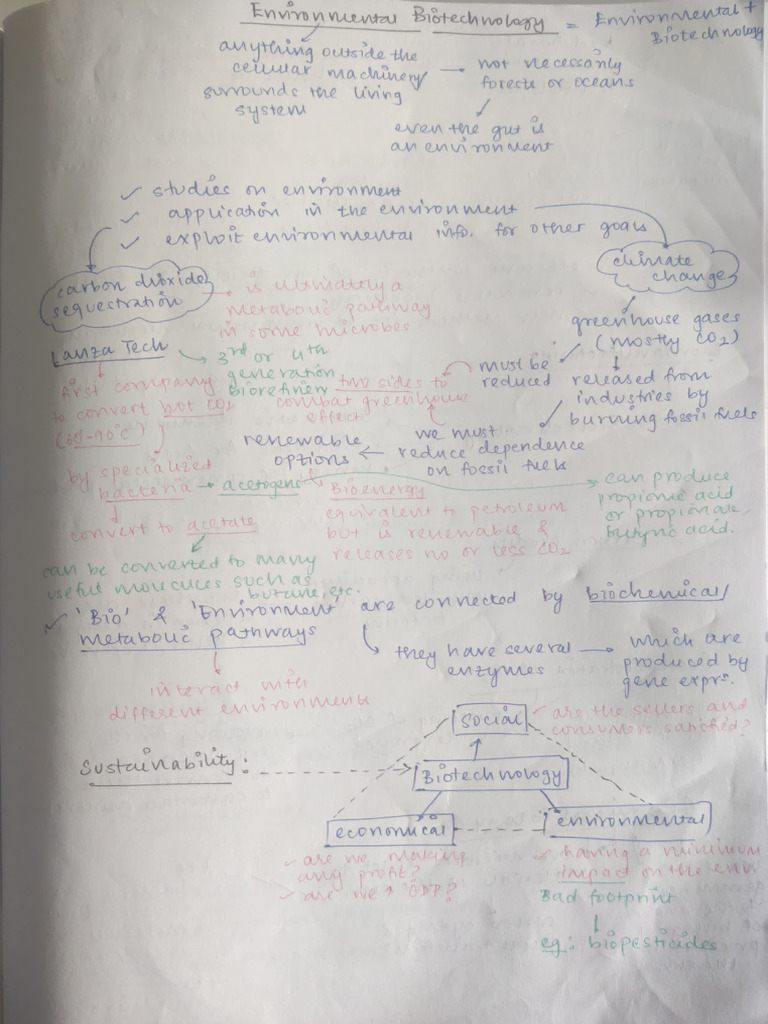 Environmental Biotechnology = Environmental +
Biotechnology
anything outside the
cellular machinery
surrounds the living
system
not necessarily
forests or oceans
even the gut is
an environment
✓ studies on environment
✓ application in the environment
✓ exploit environmental info. for other goals
carbon dioxide
sequestration
is ultimately a
metabolic pathway
in some microbes
climate
change
greenhouse gases
(mostly CO2)
must be
reduced
released from
industries by
burning fossil fuels
Lanza Tech
3rd or 4th
generation
biorefinery
first company
to convert hot CO2
(60-90°C)
two sides to
combat greenhouse
effect
we must
reduce dependence
on fossil fuels
renewable
options
by specialized
bacteria → acetogens
convert to acetate
Bioenergy
equivalent to petroleum
but is renewable &
releases no or less CO2
can produce
propionic acid
or propionate,
butyric acid.
can be converted to many
useful molecules such as
butane, etc.
✓ 'Bio' & 'Environment' are connected by biochemical/
metabolic pathways
they have several
enzymes
which are
produced by
gene exprs.
interact with
different environments
Sustainability:
social
✓ are the sellers and
consumers satisfied?
Biotechnology
economical
environmental
✓ are we making
any profit?
✓ are we ↑ GDP?
✓ having a minimum
impact on the env
Bad footprint
eg: biopesticides